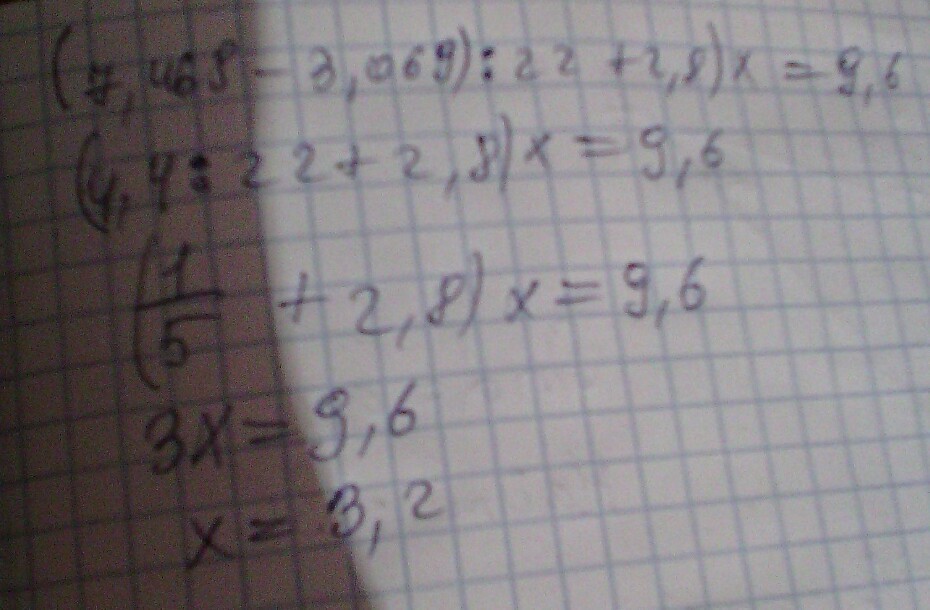 (7,469 - 3,069) : 22 + 2,8) x = 9,6
(4,4 : 22 + 2,8) x = 9,6
(1/5 + 2,8) x = 9,6
3x = 9,6
x = 3,2